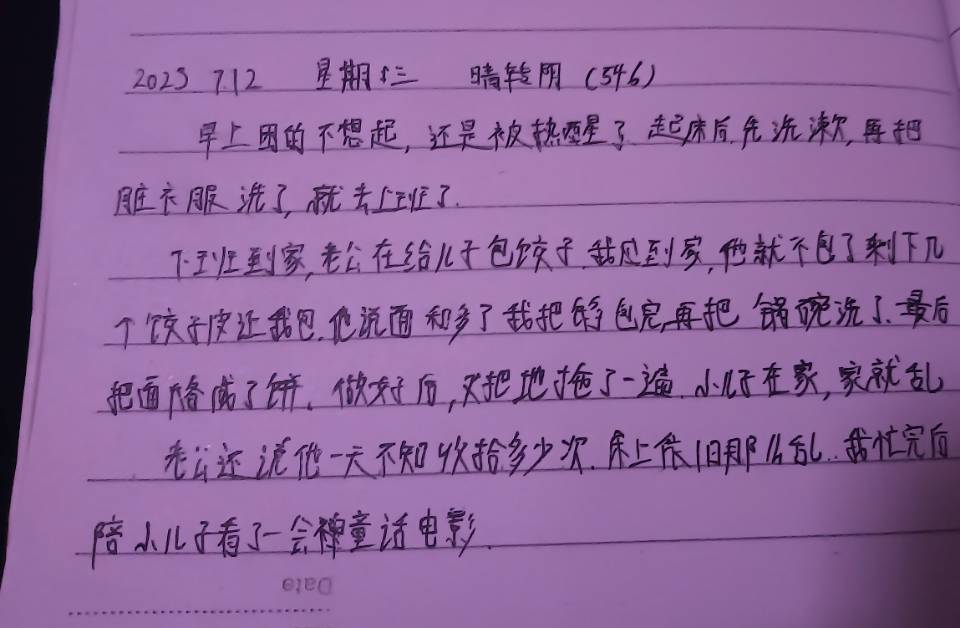 2025 7.12 星期三 晴转阴 (546)
早上困的不想起, 还是被热醒了 起床后, 先洗漱, 再把
脏衣服洗了, 就去上班了.
下班到家, 老公在给儿子包饺子. 我回到家, 他就不包了剩下几
个饺子皮让我包. 他说面和多了 我把馅包完, 再把 锅碗洗了. 最后
把面烙成了饼. 做好后, 又把地拖了一遍. 小儿子在家, 家就乱
老公还说他一天不知收拾多少次. 床上依旧那么乱. 我忙完后
陪小儿子看了一会神童话电影.
Date